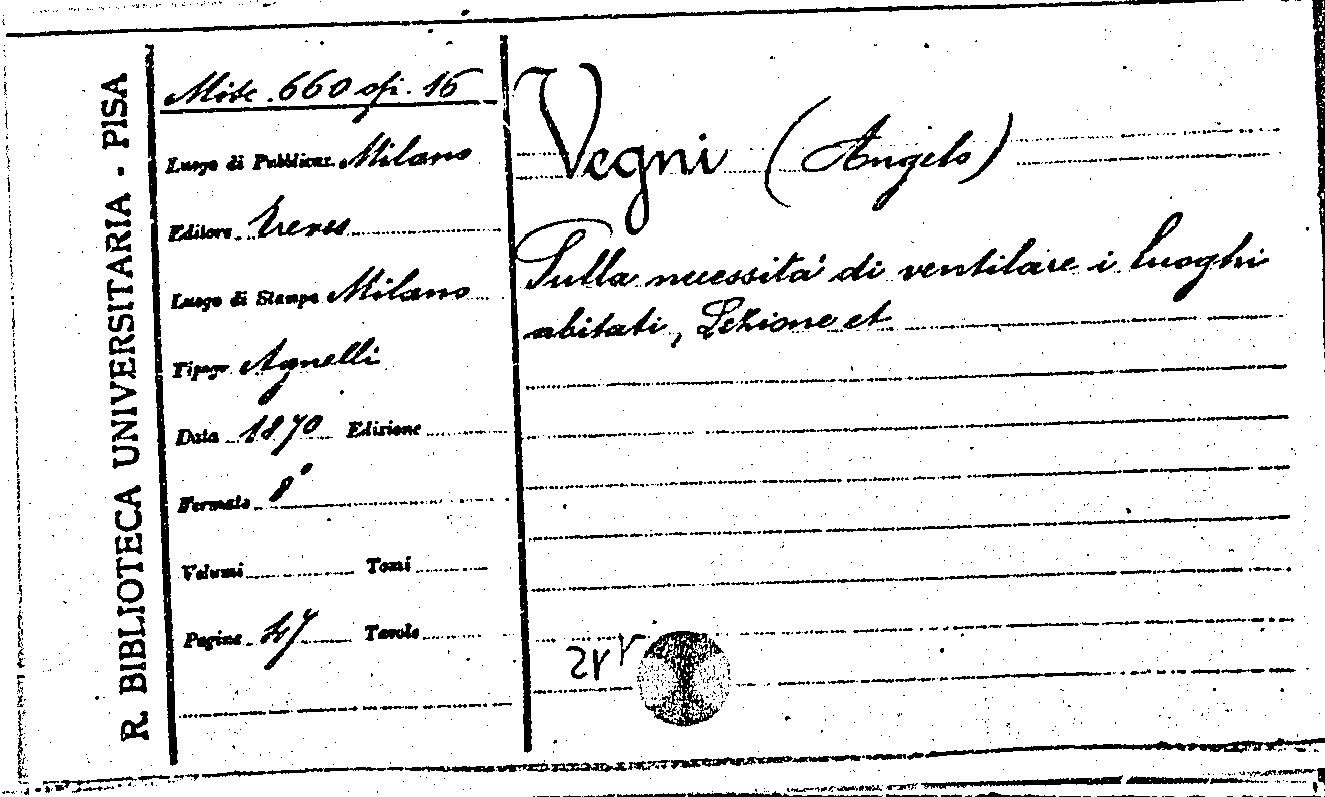 R. BIBLIOTECA UNIVERSITARIA - PISA
Misc. 660 15
Luogo di Pubblicaz. Milano
Editore Treves
Luogo di Stampa Milano
Tipogr Agnelli
Data 1870 Edizione
Formato 8°
Volumi Tomi
Pagine 47 Tavole
Vegni (Angelo)
Sulla necessità di ventilare i luoghi
abitati, Lezione et